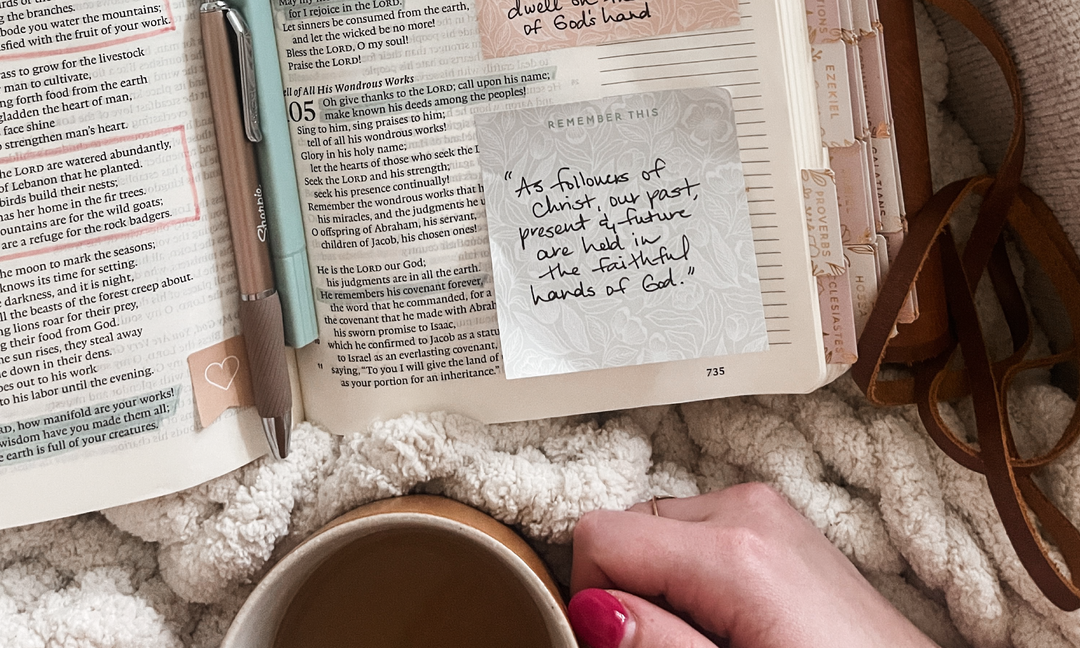 the branches.
bode you water the mountains;
sfied with the fruit of your work.
ass to grow for the livestock
man to cultivate,
ng forth food from the earth
gladden the heart of man,
face shine
strengthen man's heart.
he LORD are watered abundantly,
of Lebanon that he planted.
birds build their nests;
has her home in the fir trees.
ountains are for the wild goats;
are a refuge for the rock badgers.
he moon to mark the seasons;
knows its time for setting.
darkness, and it is night,
ll the beasts of the forest creep about.
ng lions roar for their prey,
g their food from God.
he sun rises, they steal away
down in their dens.
oes out to his work
to his labor until the evening.
RD, how manifold are your works!
wisdom have you made them all;
e earth is full of your creatures.
Sharpie
for I rejoice in the LORD.
Let sinners be consumed from the earth,
and let the wicked be no more!
Bless the LORD, O my soul!
Praise the LORD!
ell of All His Wondrous Works
05 Oh give thanks to the LORD; call upon his name;
make known his deeds among the peoples!
Sing to him, sing praises to him;
tell of all his wondrous works!
Glory in his holy name;
let the hearts of those who seek the L
Seek the LORD and his strength;
seek his presence continually!
Remember the wondrous works that h
his miracles, and the judgments he u
O offspring of Abraham, his servant,
children of Jacob, his chosen ones!
He is the LORD our God;
his judgments are in all the earth.
He remembers his covenant forever,
the word that he commanded, for a
the covenant that he made with Abrah
his sworn promise to Isaac,
which he confirmed to Jacob as a statu
to Israel as an everlasting covenant,
11 saying, "To you I will give the land of
as your portion for an inheritance."
dwell on
of God's hand
REMEMBER THIS
"As followers of
Christ, our past,
present & future
are held in
the faithful
hands of God."
735
EZEKIEL
PROVERBS
ECCLESIASTES
HOSEA
GALATIANS